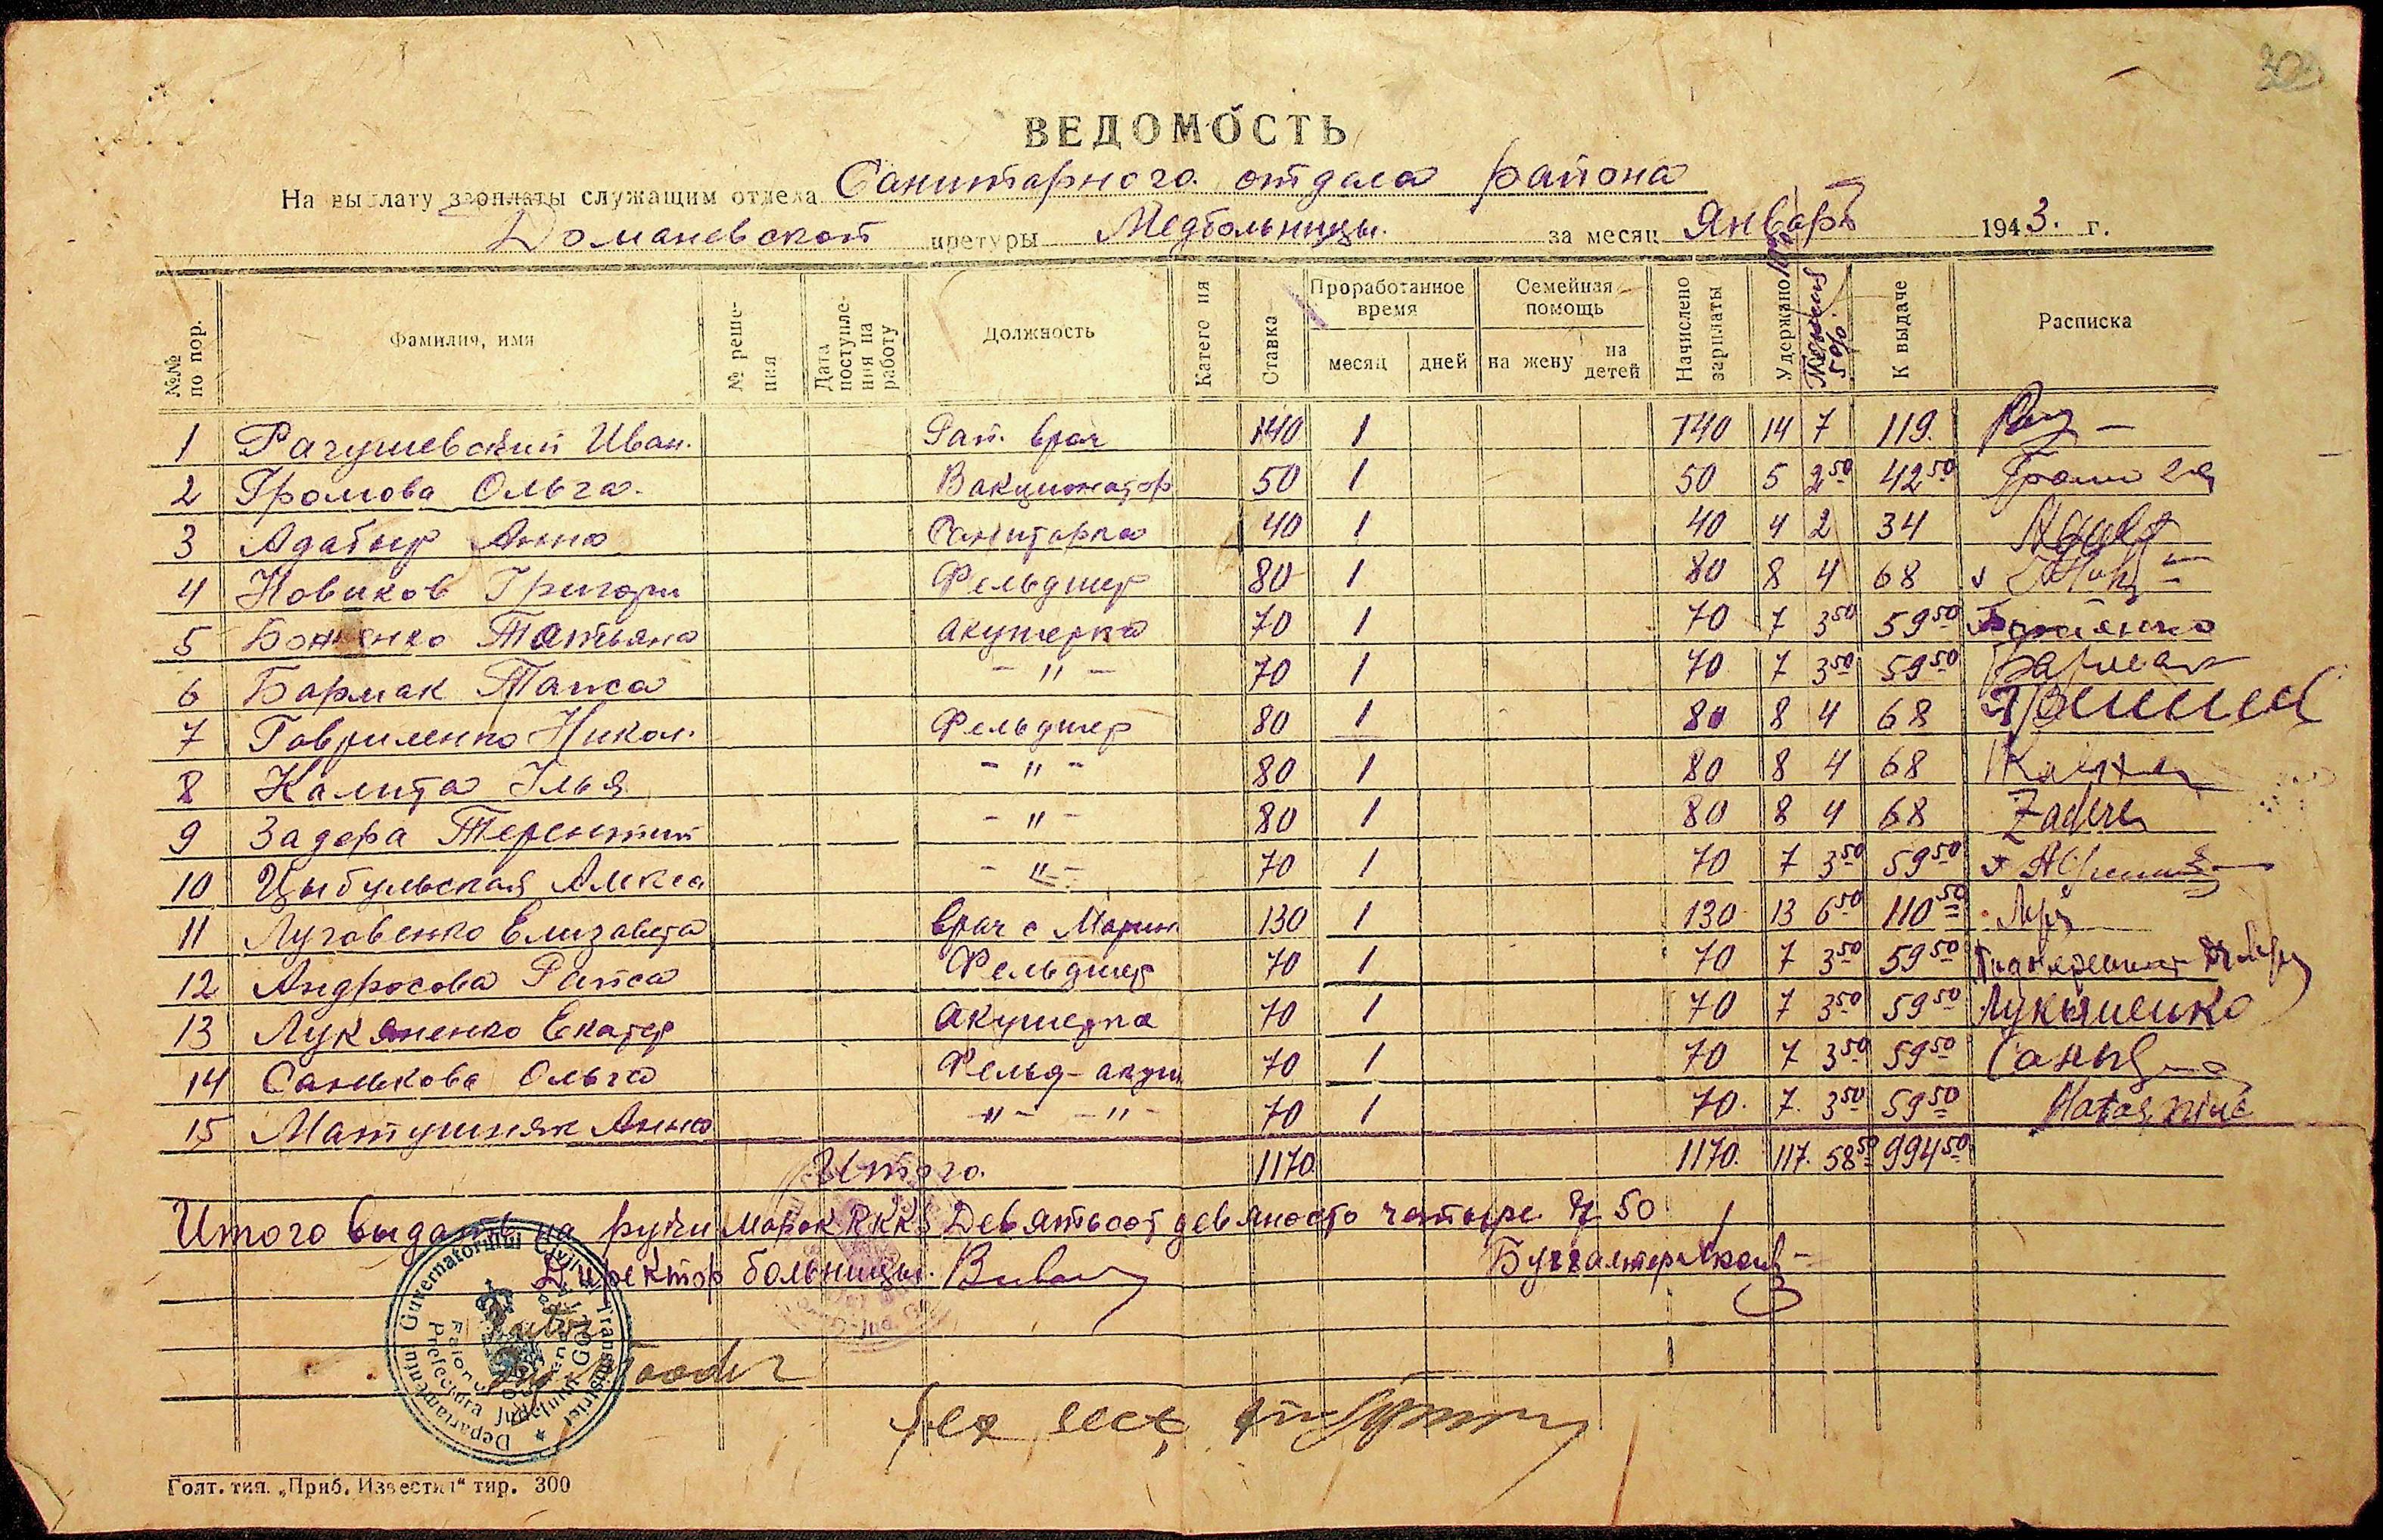 ВЕДОМОСТЬ
На выплату зарплаты служащим отдела Санитарного отдела района
Доманевской претуры Медбольницы. за месяц Январь 1943. г.
№№ по пор. Фамилия, имя № решения Дата поступления на работу Должность Ставка Проработанное время месяц дней Семейная помощь на жену на детей Начислено зарплаты Удержано 10% Пенсия 5% К выдаче Расписка
1 Рагушевский Иван. Рай. врач 140 1 140 14 7 119.
2 Громова Ольга. Вакцинатор 50 1 50 5 2 50 42 50
3 Адабир Анна Санитарка 40 1 40 4 2 34
4 Новиков Григори Фельдшер 80 1 80 8 4 68
5 Татьяна акушерка 70 1 70 7 3 50 59 50
6 Бармак Таиса - " - 70 1 70 7 3 50 59 50 Бармак
7 Гавриленко Никол. Фельдшер 80 1 80 8 4 68
8 Калита Илья - " - 80 1 80 8 4 68
9 Задера Терентий - " - 80 1 80 8 4 68 Zadera
10 Цыбульская Алекса - " - 70 1 70 7 3 50 59 50
11 Луговенко Елизавета врач с 130 1 130 13 6 50 110 50
12 Андросова Раиса Фельдшер 70 1 70 7 3 50 59 50
13 Лукяненко Екатер акушерка 70 1 70 7 3 50 59 50 Лукяненко
14 Санькова Ольга Фельд-акуш 70 1 70 7 3 50 59 50
15 Матушняк Анна -"- -"- 70 1 70. 7. 3 50 59 50
Итого. 1170 1170. 117. 58 50 994 50
Итого выдать на руки марок RKKS Девятьсот девяносто четыре 50
Директор больницы. Бухгалтер
Guvernatorul Civil al Transnistriei
Prefectura Jud. Golta
Голт. тип. „Приб. Известия“ тир. 300